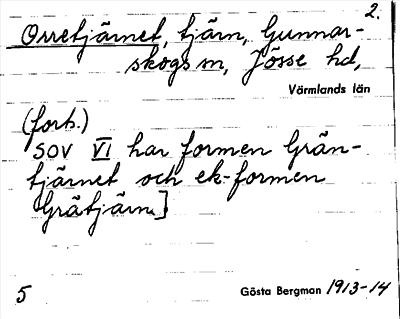 2.
Orretjärnet, tjärn, Gunnar-
skogs sn, Jösse hd,
Värmlands län
(forts.)
SOV VI har formen Grän-
tjärnet och ek-formen
Grätjärn.]
5
Gösta Bergman 1913-14